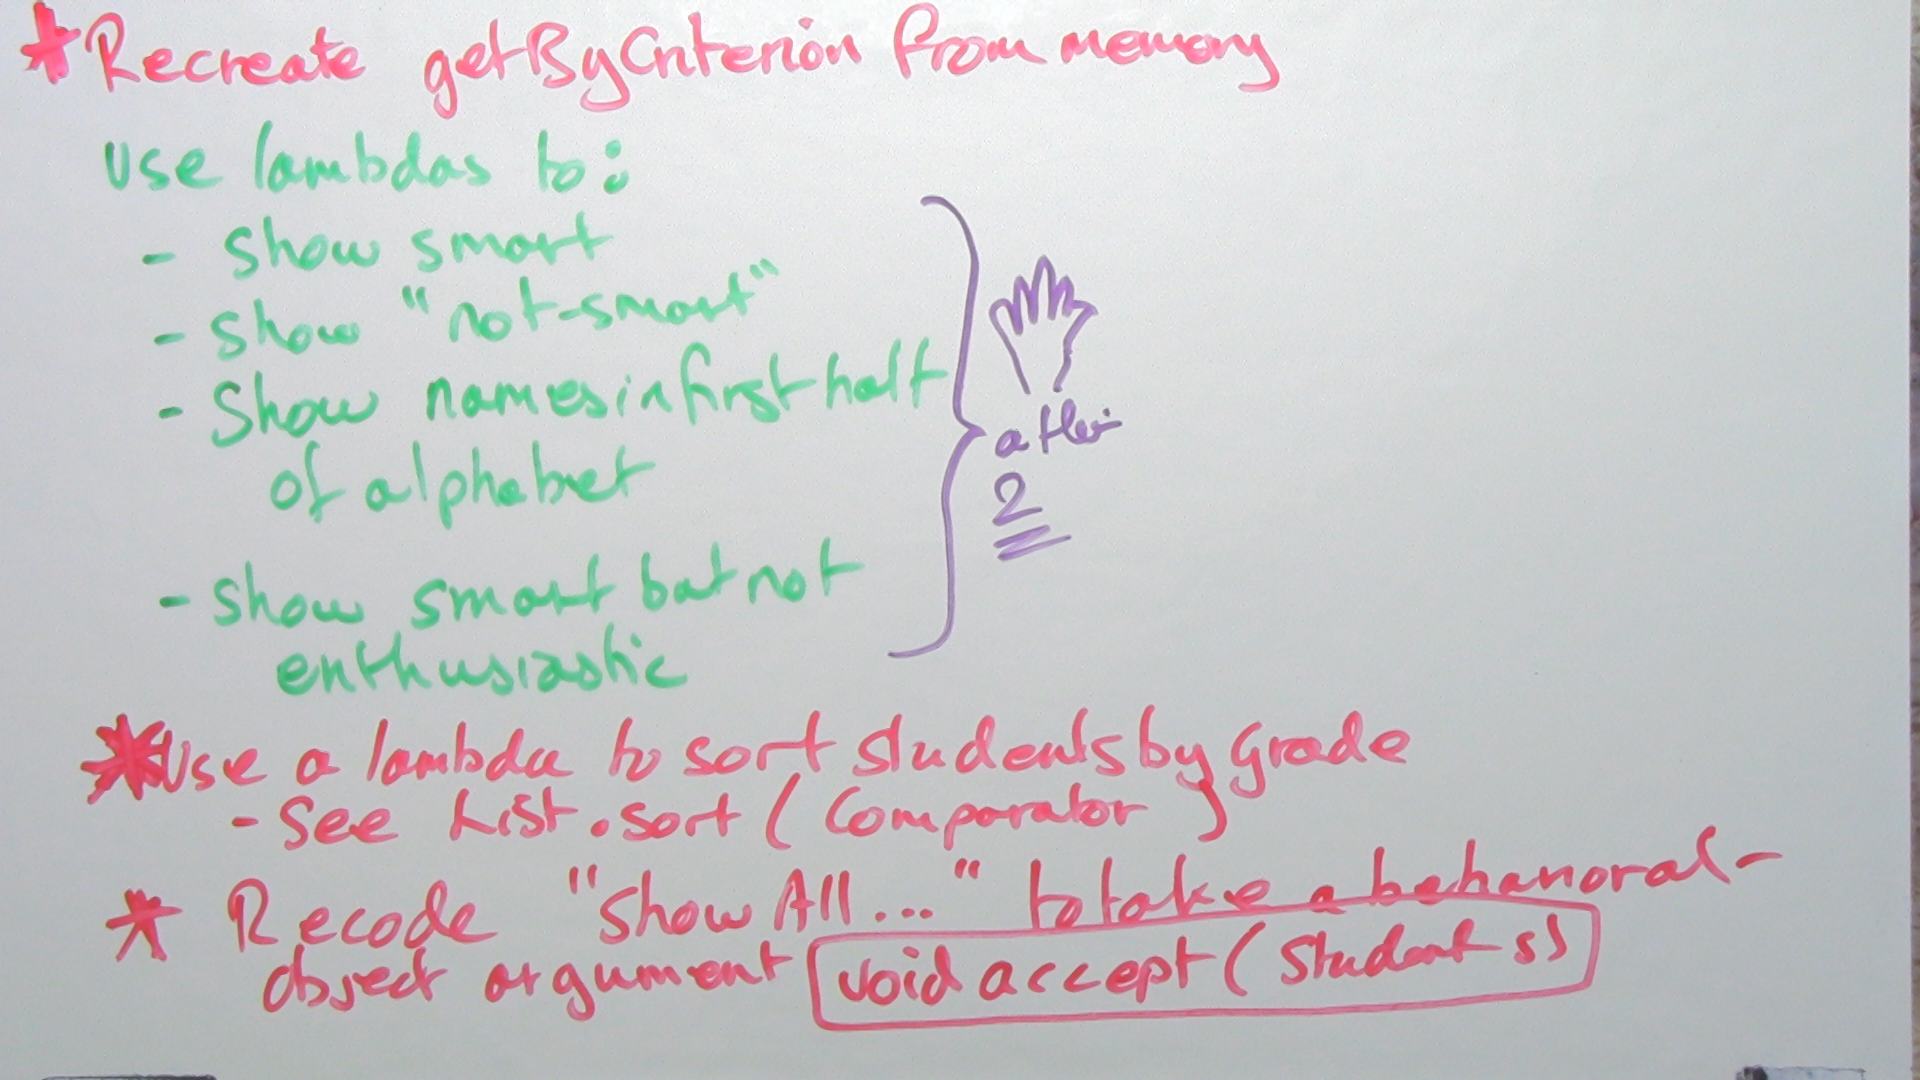 * Recreate getByCriterion from memory
use lambdas to:
- show smart
- show "not-smart"
- Show names in first half
of alphabet
- show smart but not
enthusiastic
after
2
* Use a lambda to sort students by grade
- see List.sort(Comparator)
* Recode "show All..." to take a behavioral-
object argument void accept(Student s)